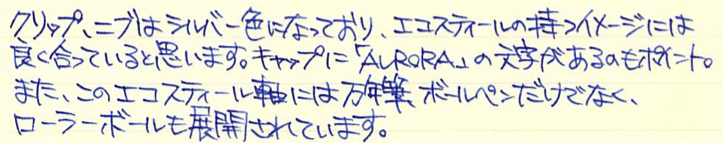 クリップ、ニブはシルバー色になっており、エコスティールの持つイメージには
良く合っていると思います。キャップに「AURORA」の文字があるのもポイント。
また、このエコスティール軸には万年筆、ボールペンだけでなく、
ローラーボールも展開されています。